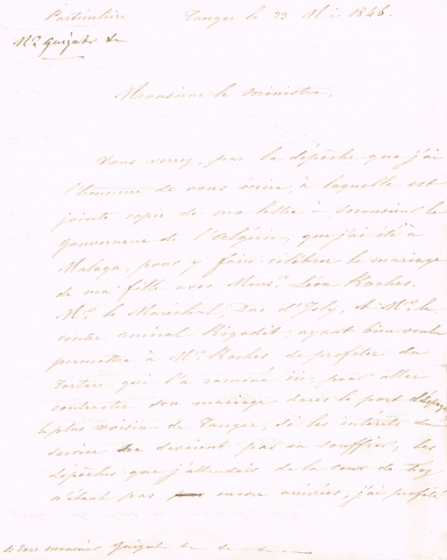 Particulière Tanger le 23 Mai 1846.
Mr. Guizot &c
Monsieur le ministre,
Vous verrez, par la dépêche que j'ai
l'honneur de vous écrire, à laquelle est
jointe copie de ma lettre à monsieur le
Gouverneur de l'Algérie, que j'ai été à
Malaga, pour y faire célébrer le mariage
de ma fille avec Monsr. Léon Roches.
Mr. le Maréchal, Duc d'Isly, et Mr. le
contre amiral Rigodit, ayant bien voulu
permettre à Mr. Roches de profiter du
Tartare qui l'a ramené ici, pour aller
contracter son mariage dans le port d'Espagne
le plus voisin de Tanger, si les intérêts du
service ne devaient pas en souffrir, les
dépêches que j'attendais de la cour de Fez
n'étant pas encore arrivées, j'ai profité
Guizot &c &c &c